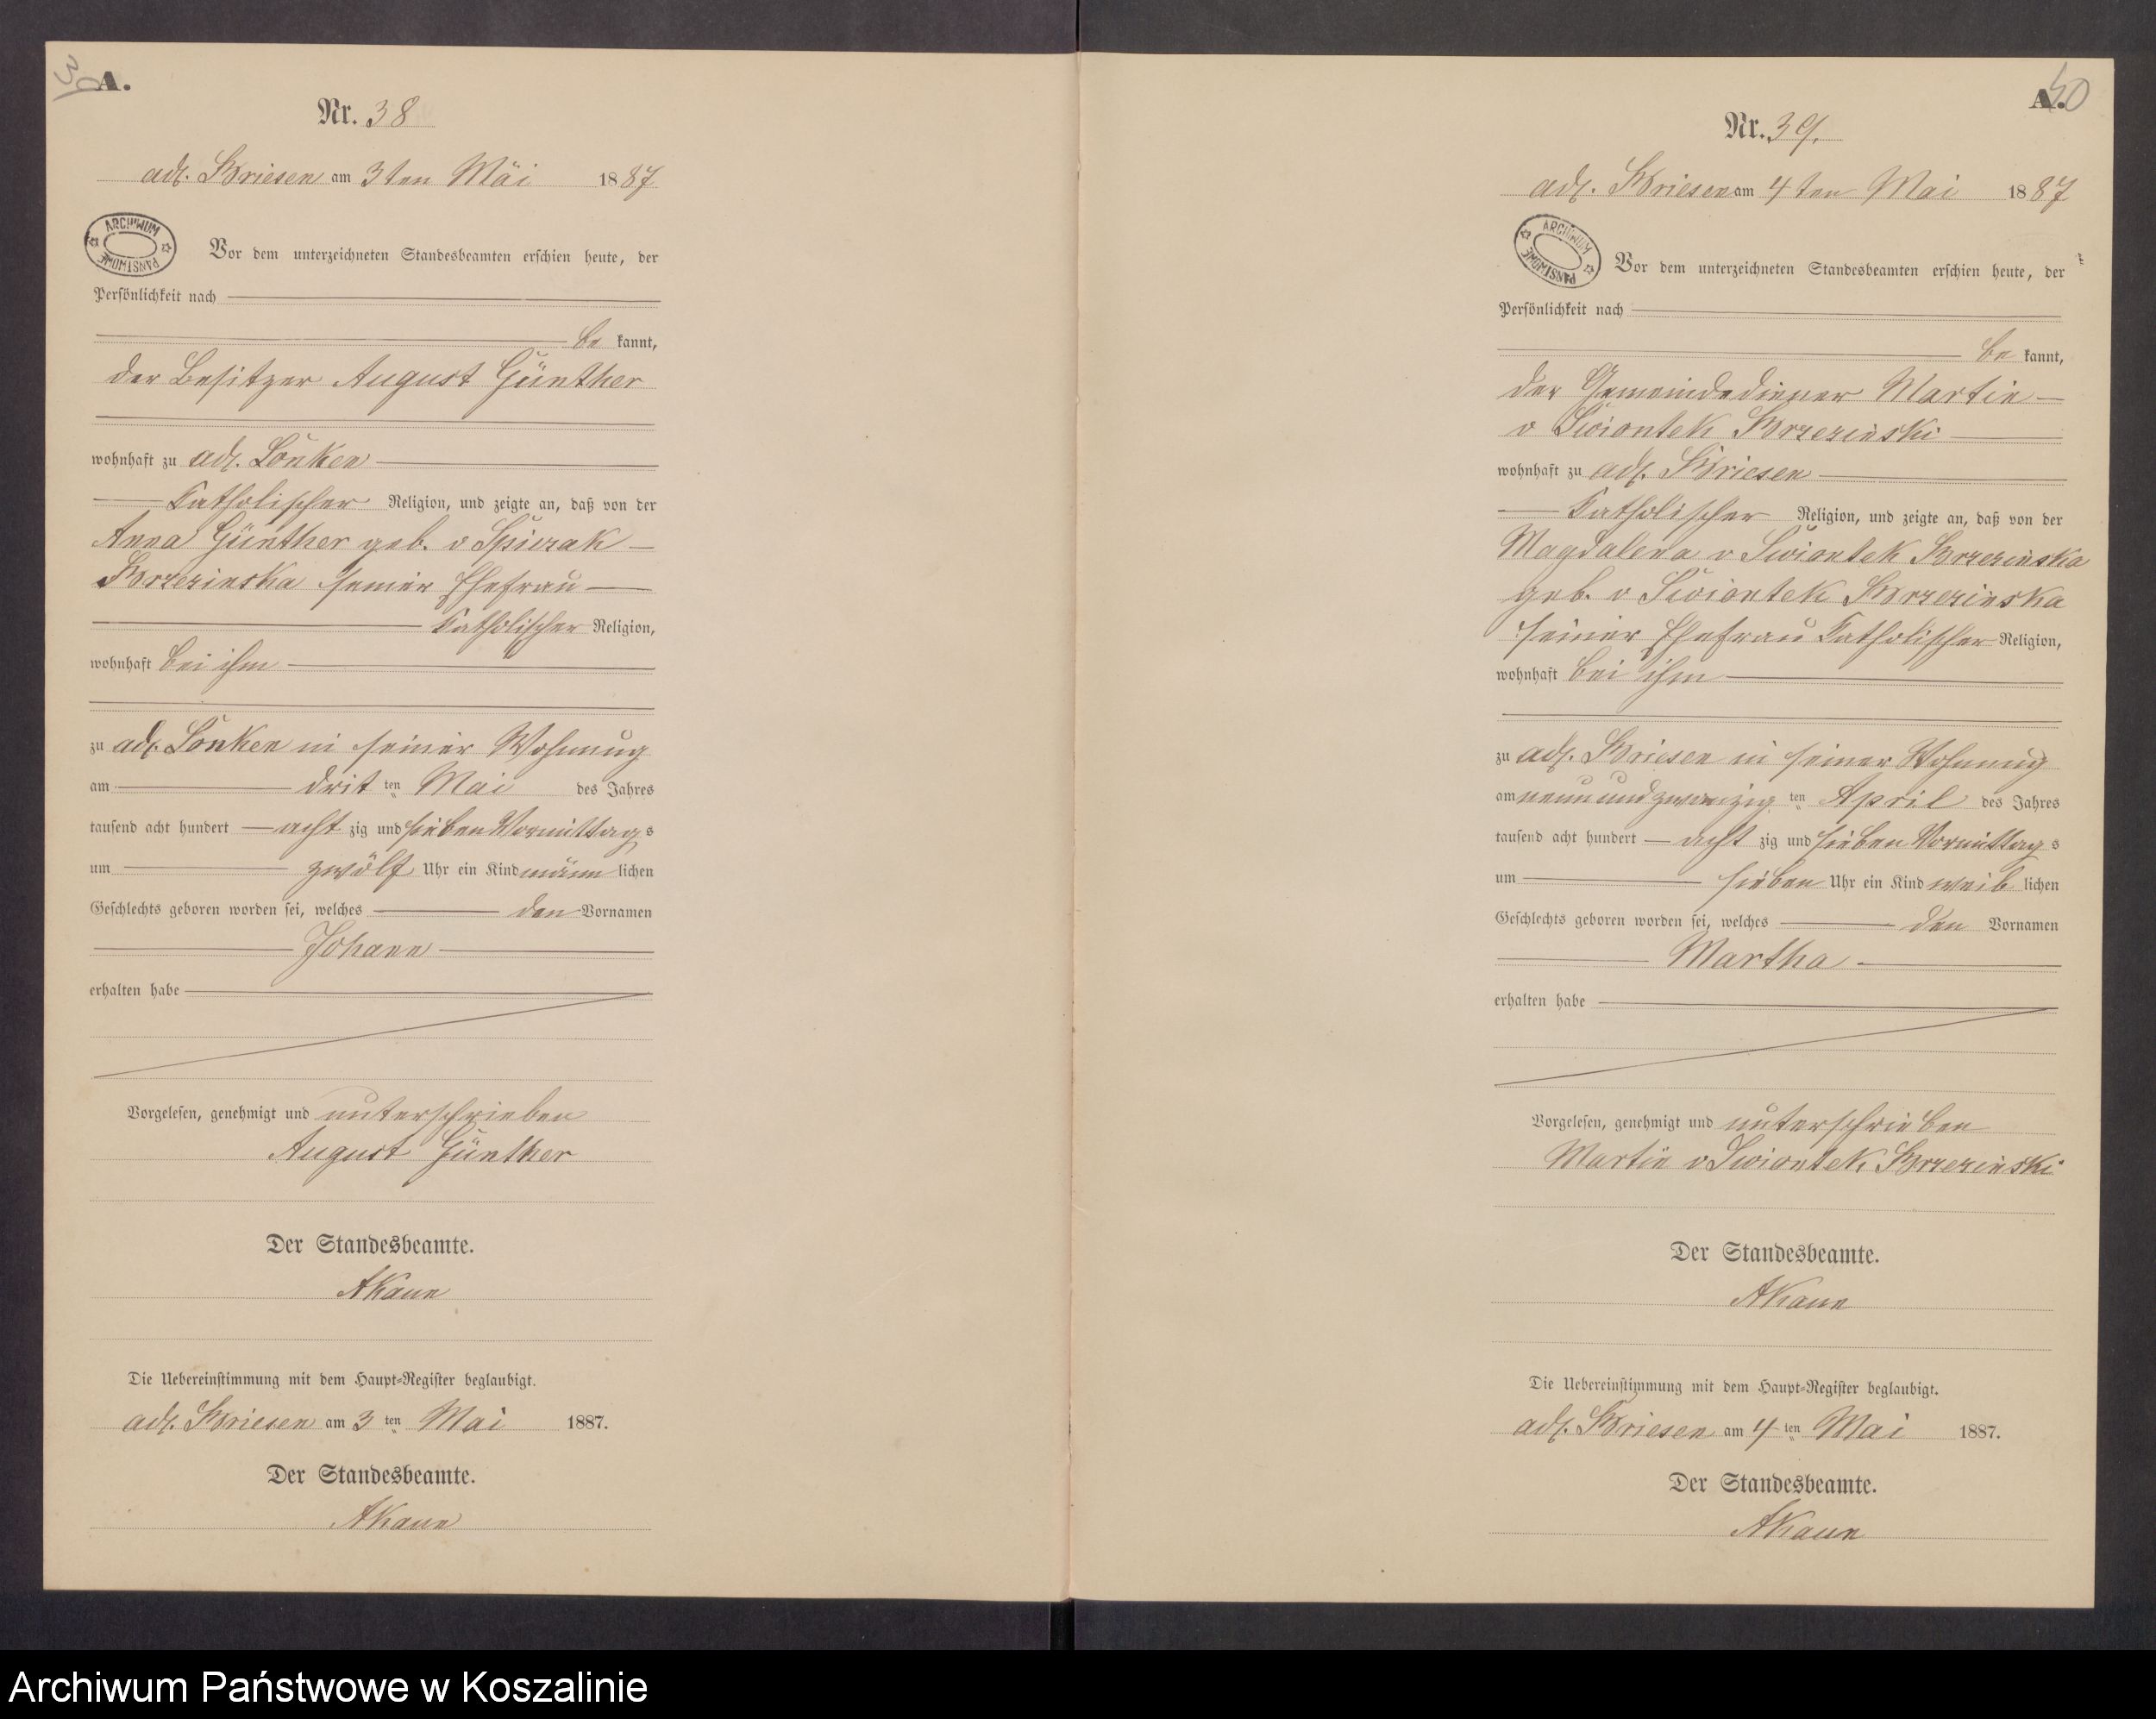 39
A.
Nr. 38
adl. Briesen am 3ten Mai 1887
ARCHIWUM
PAŃSTWOWE
Vor dem unterzeichneten Standesbeamten erschien heute, der
Persönlichkeit nach
be kannt,
der Besitzer August Günther
wohnhaft zu adl. Lonken
Katholischer Religion, und zeigte an, daß von der
Anna Günther geb. v Spiczak
Brzezinska seiner Ehefrau
Katholischer Religion,
wohnhaft bei ihm
zu adl. Lonken in seiner Wohnung
am drit ten Mai des Jahres
tausend acht hundert acht zig und sieben Vormittags
um zwölf Uhr ein Kind männ lichen
Geschlechts geboren worden sei, welches den Vornamen
Johann
erhalten habe
Vorgelesen, genehmigt und unterschrieben
August Günther
Der Standesbeamte.
AKaun
Die Uebereinstimmung mit dem Haupt-Register beglaubigt.
adl. Briesen am 3 ten Mai 1887.
Der Standesbeamte.
AKaun
40
A.
Nr. 39.
adl. Briesen am 4ten Mai 1887
ARCHIWUM
PAŃSTWOWE
Vor dem unterzeichneten Standesbeamten erschien heute, der
Persönlichkeit nach
be kannt,
der Gemeindediener Martin
v Swiontek Brzezinski
wohnhaft zu adl. Briesen
Katholischer Religion, und zeigte an, daß von der
Magdalena v Swiontek Brzezinska
geb. v Swiontek Brzezinska
seiner Ehefrau Katholischer Religion,
wohnhaft bei ihm
zu adl. Briesen in seiner Wohnung
am neun und zwanzig ten April des Jahres
tausend acht hundert acht zig und sieben Vormittags
um sieben Uhr ein Kind weib lichen
Geschlechts geboren worden sei, welches den Vornamen
Martha
erhalten habe
Vorgelesen, genehmigt und unterschrieben
Martin v Swiontek Brzezinski
Der Standesbeamte.
AKaun
Die Uebereinstimmung mit dem Haupt-Register beglaubigt.
adl. Briesen am 4 ten Mai 1887.
Der Standesbeamte.
AKaun
Archiwum Państwowe w Koszalinie